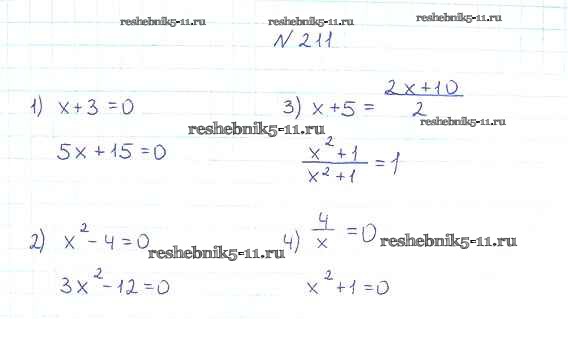 reshebnik5-11.ru reshebnik5-11.ru reshebnik5-11.ru
N 211
1) x+3=0
5x+15=0
reshebnik5-11.ru
3) x+5 = (2x+10)/2
reshebnik5-11.ru
(x²+1)/(x²+1) = 1
2) x²-4=0
reshebnik5-11.ru
3x²-12=0
4) 4/x = 0
reshebnik5-11.ru
x²+1=0